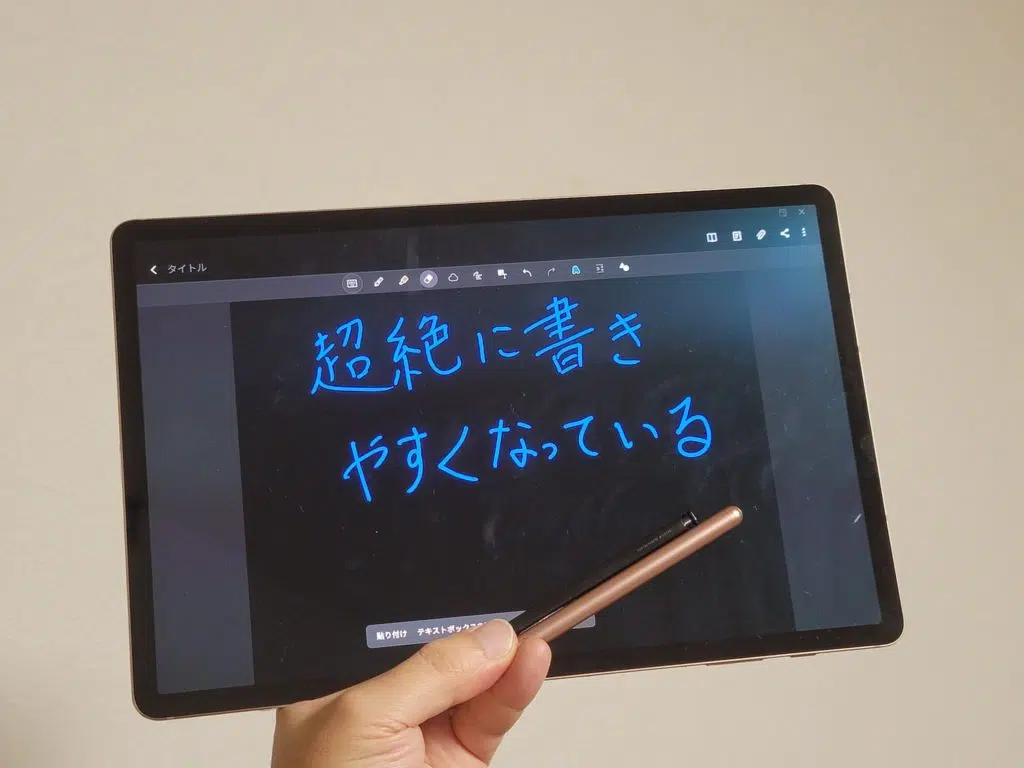 タイトル
超絶に書き
やすくなっている
貼り付け テキストボックス